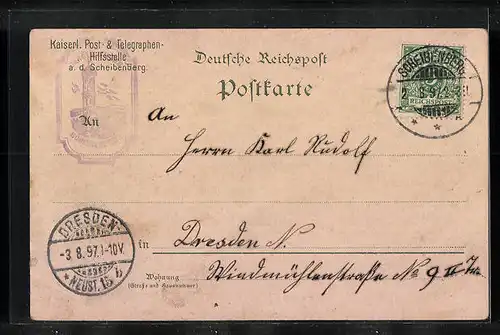 Kaiserl. Post- & Telegraphen-
Hilfsstelle
a. d. Scheibenberg.
Deutsche Reichspost
Postkarte
SCHEIBENBERG
REICHSPOST
An
An
Herrn Karl Rudolf
DRESDEN-
-3 8.97. 9-10V.
* NEUST. 15 b
in
Dresden N.
Wohnung
(Straße und Hausnummer)
Windmühlenstraße No 9 II